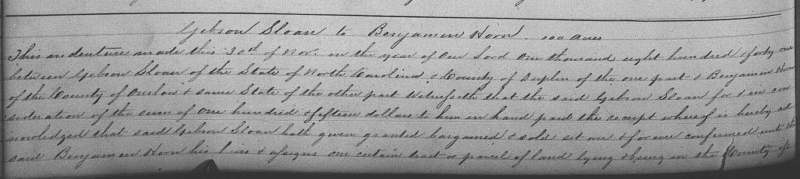 Gebson Sloan to Benjamin Horn 100 Acres
This indenture made this 30th of Nov. in the year of Our Lord One thousand eight hundred & forty one
between Gebson Sloan of the State of North Carolina & County of Duplin of the one part & Benjamin Horn
of the County of Onslow & same State of the other part Witnesseth that the said Gebson Sloan for & in con
sideration of the sum of One hundred & fifteen dollars to him in hand paid the receipt whereof is hereby ack
nowledged that said Gebson Sloan hath given granted bargained & sold set over & forever confirmed unto the
said Benjamin Horn his heirs & assigns one certain tract or parcel of land lying & being in the County of